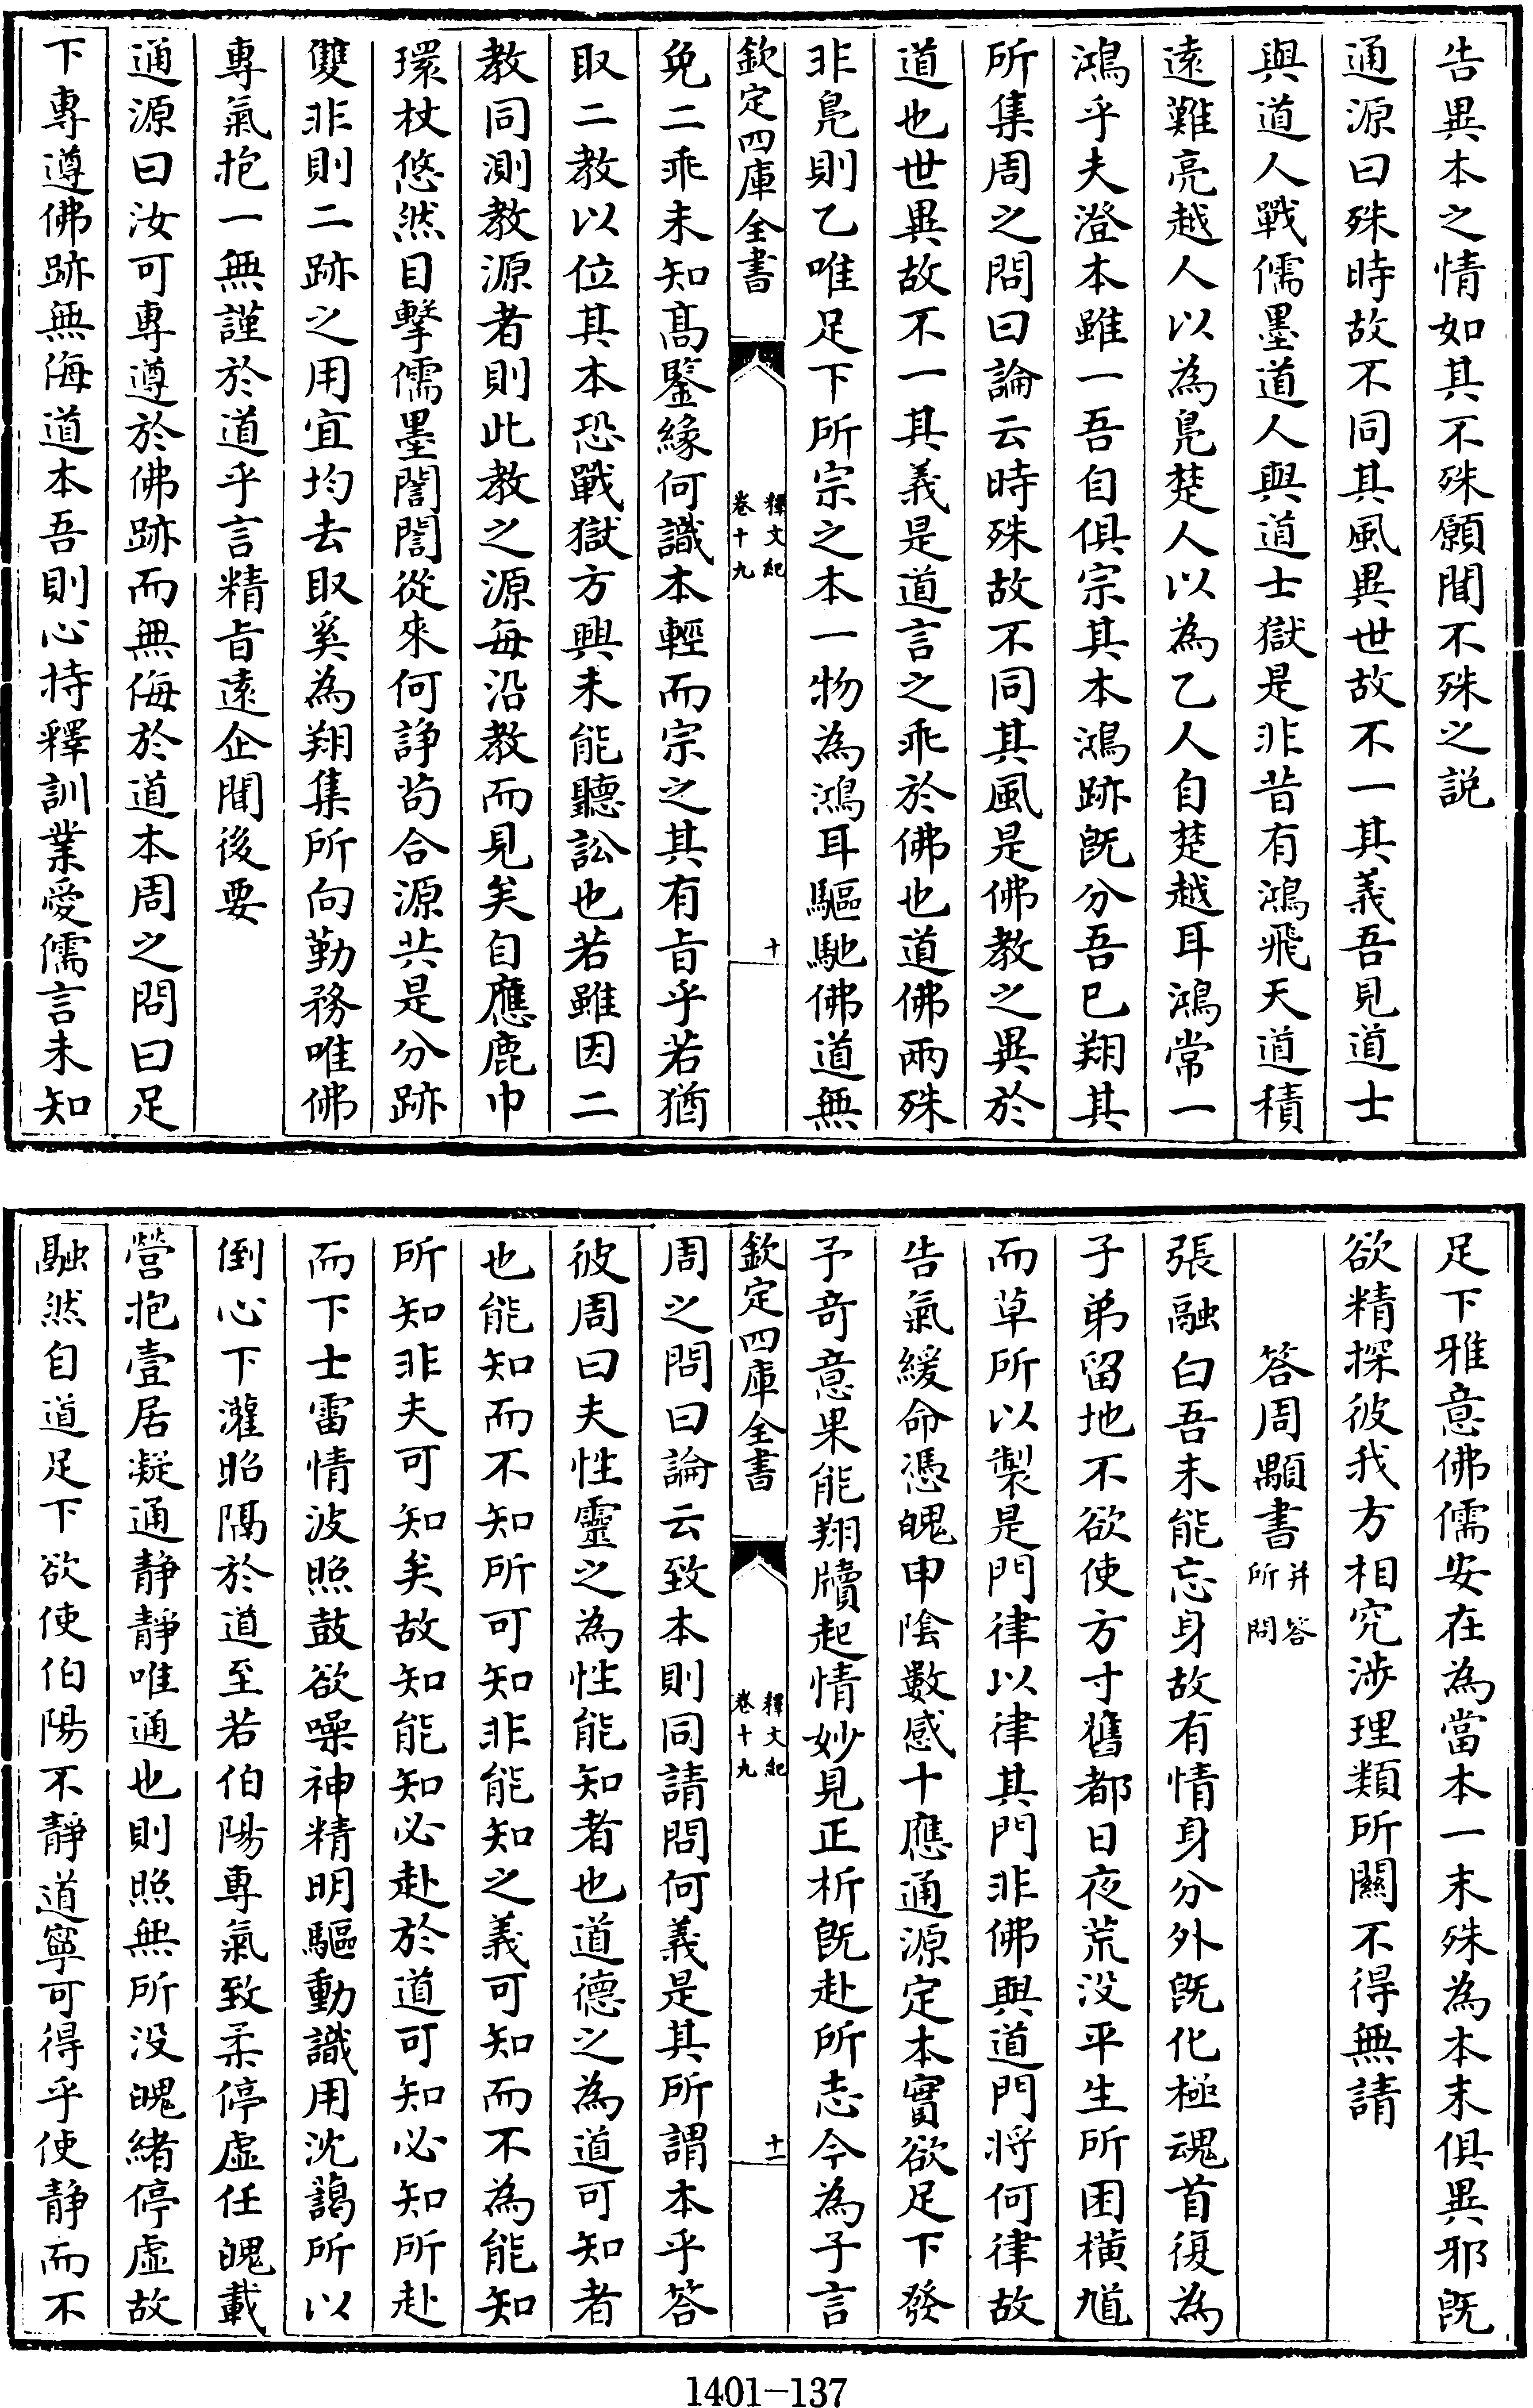 告異本之情如其不殊願聞不殊之説
通源曰殊時故不同其風異世故不一其義吾見道士
與道人戰儒墨道人與道士獄是非昔有鴻飛天道積
遠難亮越人以為鳧楚人以為乙人自楚越耳鴻常一
鴻乎夫澄本雖一吾自俱宗其本鴻跡既分吾已翔其
所集周之問曰論云時殊故不同其風是佛教之異於
道也世異故不一其義是道言之乖於佛也道佛兩殊
非鳧則乙唯足下所宗之本一物為鴻耳驅馳佛道無
欽定四庫全書
釋文紀
卷十九
十
免二乖未知髙鍳緣何識本輕而宗之其有㫖乎若猶
取二教以位其本恐戰獄方興未能聽訟也若雖因二
教同測教源者則此教之源每沿教而見矣自應鹿巾
環杖悠然目擊儒墨誾誾從來何諍茍合源共是分跡
雙非則二跡之用宜均去取奚為翔集所向勤務唯佛
專氣抱一無謹於道乎言精㫖遠企聞後要
通源曰汝可專遵於佛跡而無侮於道本周之問曰足
下專遵佛跡無侮道本吾則心持釋訓業愛儒言未知
足下雅意佛儒安在為當本一末殊為本末俱異邪既
欲精探彼我方相究涉理類所關不得無請
答周顒書
并答
所問
張融白吾未能忘身故有情身分外既化極魂首復為
子弟留地不欲使方寸舊都日夜荒没平生所困橫馗
而草所以製是門律以律其門非佛與道門將何律故
告氣緩命憑魄申陰數感十應通源定本實欲足下發
予奇意果能翔牘起情妙見正析既赴所志今為子言
欽定四庫全書
釋文紀
卷十九
十一
周之問曰論云致本則同請問何義是其所謂本乎答
彼周曰夫性靈之為性能知者也道德之為道可知者
也能知而不知所可知非能知之義可知而不為能知
所知非夫可知矣故知能知必赴於道可知必知所赴
而下士雷情波照鼓欲噪神精明驅動識用沈藹所以
倒心下灌昭隔於道至若伯陽專氣致柔停虚任魄載
營抱壹居凝通静靜唯通也則照無所没魄緒停虚故
融然自道足下欲使伯陽不靜道寧可得乎使静而不
1401-137